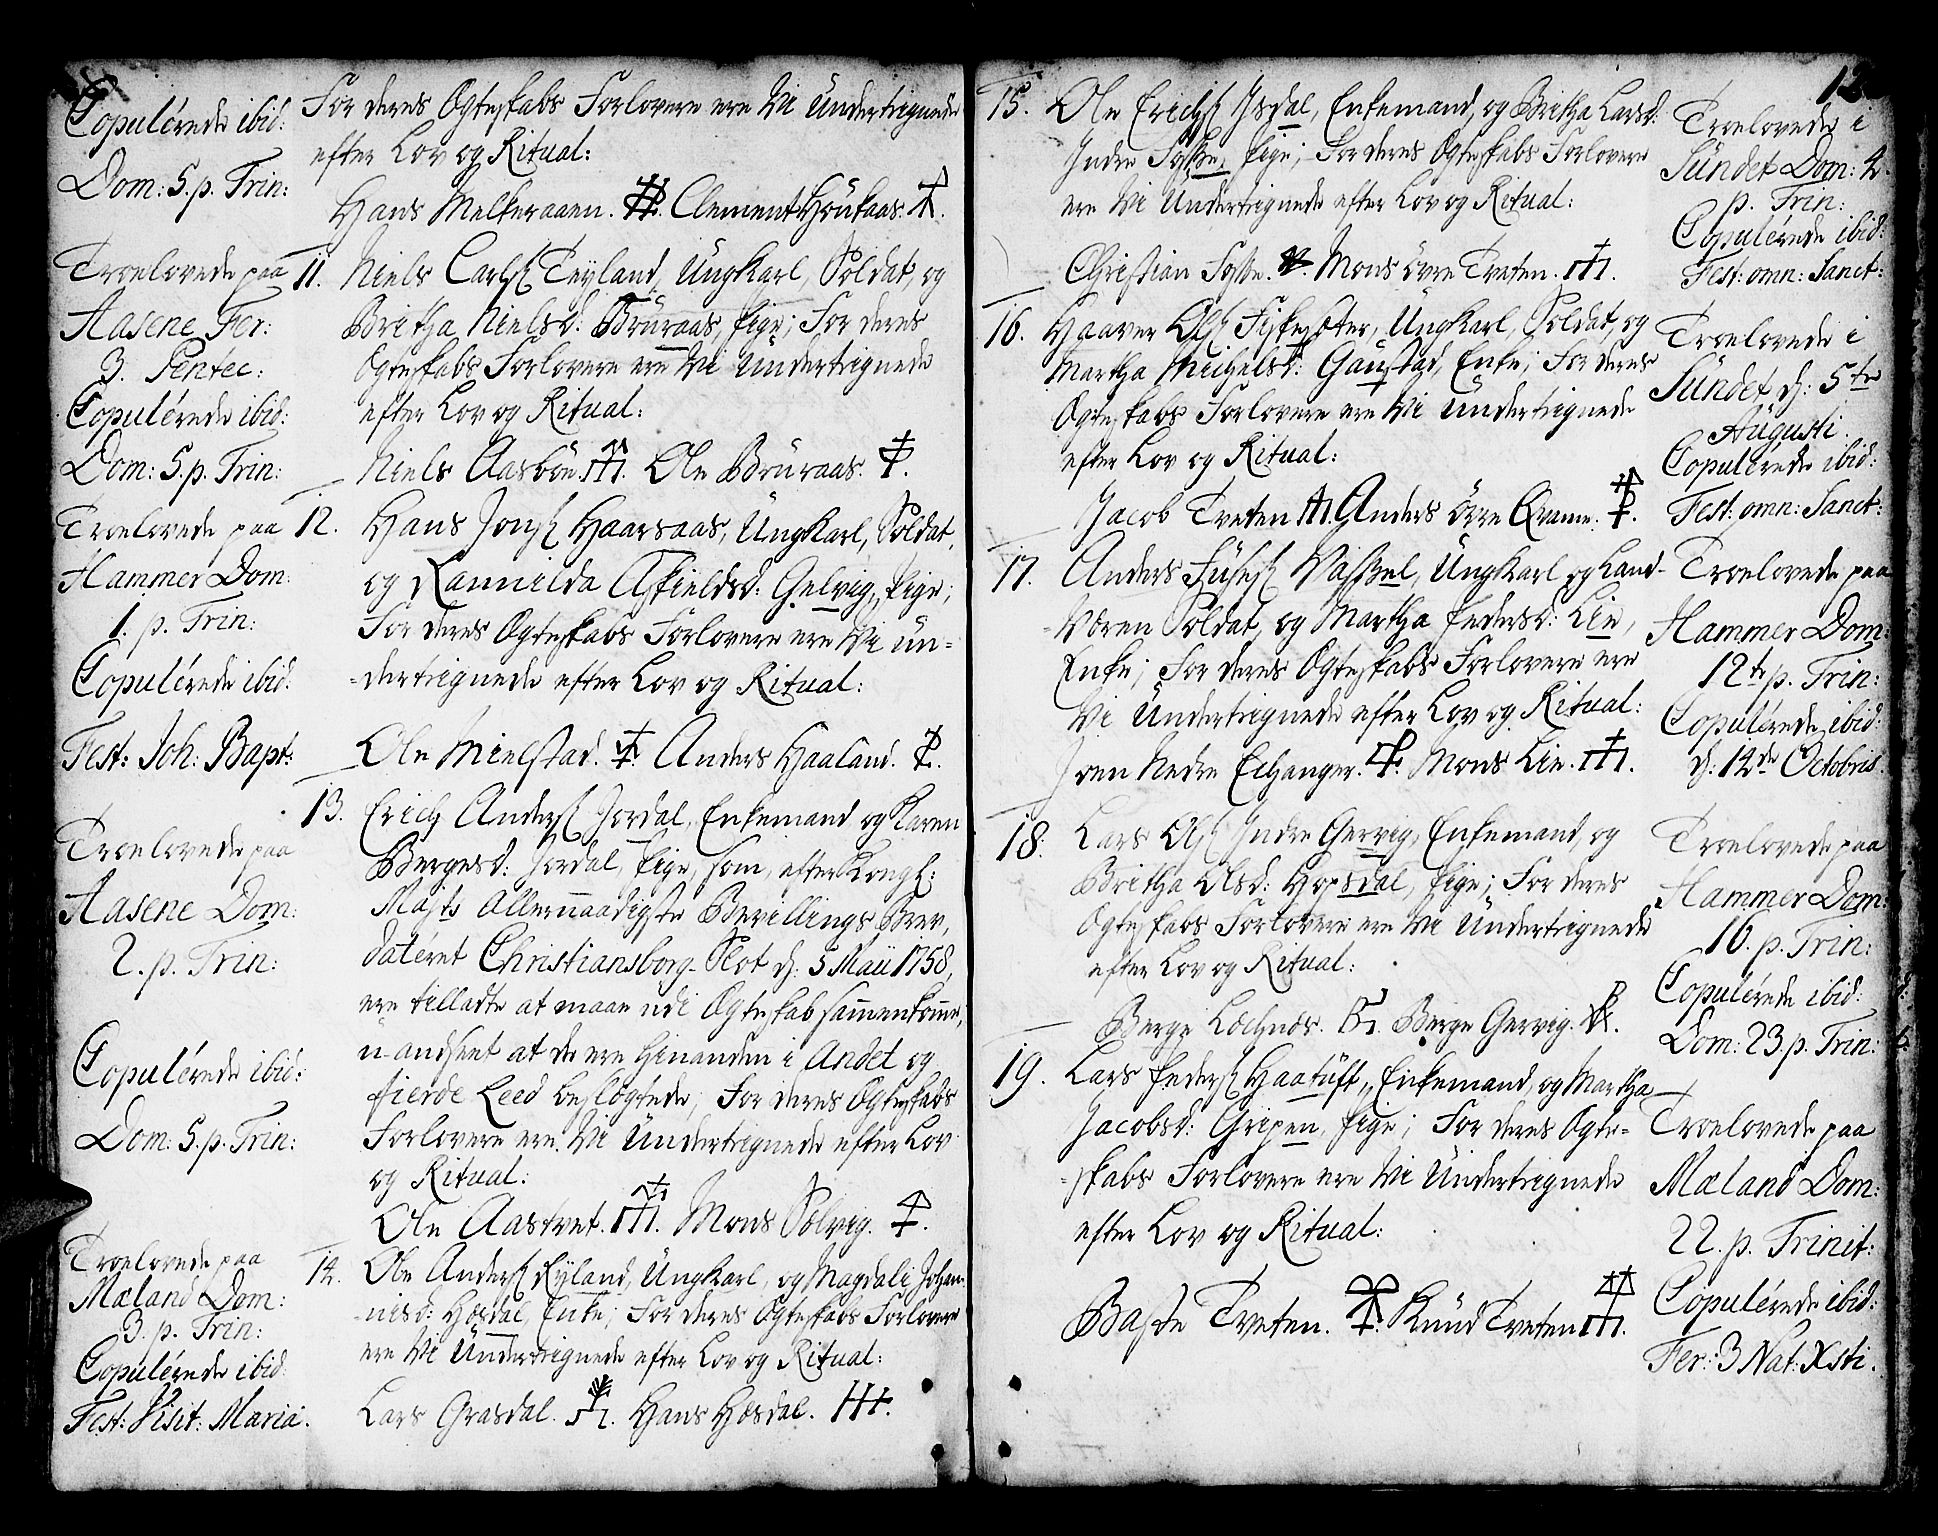 Copulérede ibid:
Dom: 5. p. Trin:
For deres Ægteskabs Forlovere ere Vi Ündertegnede
efter Lov og Ritual:
Hans Melkeraaen. Clement Höükaas.
Troelovede paa
Aasene Fer:
3. Pentec:
Copulérede ibid:
Dom: 5. p. Trin:
11. Niels Carls: Teyland, Üngkarl, Soldat, og
Britha Nielsd: Brüraas, Pige; For deres
Ægteskabs Forlovere ere Vi Ündertegnede
efter Lov og Ritual:
Niels Aasböe. Ole Brüraas.
Troelovede paa
Hammer Dom:
1. p. Trin:
Copulérede ibid:
Fest: Joh: Bapt:
12. Hans Jons: Haarsaas, Üngkarl, Soldat,
og Rannilda Askieldsd: Gelvig, Pige;
For deres Ægteskabs Forlovere ere Vi ün-
-dertegnede efter Lov og Ritual:
Ole Mielstad. Anders Haaland.
Troelovede paa
Aasene Dom:
2. p. Trin:
Copulérede ibid:
Dom: 5. p. Trin:
13. Erich Anders: Jordal, Enkemand og Karen
Bergesd: Jordal, Pige, som, efter Kongl:
Majts Allernaadigste Bevillings Brev,
datéret Christiansborg-Slot d: 5 Maii 1758,
ere tilladte at maae udi Ægteskab sammenkomme,
u-andseet at de ere hinanden i Andet og
fierde Leed beslægtede; For deres Ægteskabs
Forlovere ere Vi Ündertegnede efter Lov
og Ritual:
Ole Aastvet. Mons Solvig.
Troelovede paa
Mæland Dom:
3. p. Trin:
Copulérede ibid:
Fest: Visit: Mariä.
14. Ole Anders: Eyland, Üngkarl, og Magdali Johan-
-nisd: Hæsdal, Enke; For deres Ægteskabs Forlovere
ere Vi Ündertegnede efter Lov og Ritual:
Lars Grasdal. Hans Hæsdal.
15. Ole Erichs: Isdal, Enkemand, og Britha Larsd:
Indre Fosse, Pige; For deres Ægteskabs Forlovere
ere Vi Ündertegnede efter Lov og Ritual:
Christian Fosse. Mons övre Tveten.
Troelovede i
Sündet Dom: 4.
p. Trin:
Copulérede ibid:
Fest: omn: Sanct:
16. Haaver Ols: Fiskesæter, Üngkarl, Soldat, og
Martha Michelsd: Gaüstad, Enke; For deres
Ægteskabs Forlovere ere Vi Ündertegnede
efter Lov og Ritual:
Jacob Tveten Anders övre Qvamme.
Troelovede i
Sündet d: 5te
Augusti
Copulérede ibid:
Fest: omn: Sanct:
17. Anders Füses: Vassel, Üngkarl og Land-
-Væren Soldat, og Martha Pedersd: Lie,
Enke; For deres Ægteskabs Forlovere ere
Vi Ündertegnede efter Lov og Ritual:
Joen Nedre Echanger. Mons Lie.
Troelovede paa
Hammer Dom:
12te p. Trin:
Copulérede ibid:
d: 14de Octobris.
18. Lars Ols: Indre Gervig, Enkemand, og
Britha Olsd: Hopsdal, Pige; For deres
Ægteskabs Forlovere ere Vi Ündertegnede
efter Lov og Ritual:
Berge Lochnæs. Berge Gervig.
Troelovede paa
Hammer Dom:
16. p. Trin:
Copulérede ibid:
Dom: 23. p. Trin:
19. Lars Peders: Haatüft, Enkemand, og Martha
Jacobsd: Gripen, Pige; For deres Ægte-
-skabs Forlovere ere Vi Ündertegnede
efter Lov og Ritual:
Baste Tveten. Knüd Tveten
Troelovede paa
Mæland Dom:
22. p. Trinit:
Copulérede ibid:
Fer: 3 Nat: Xsti.